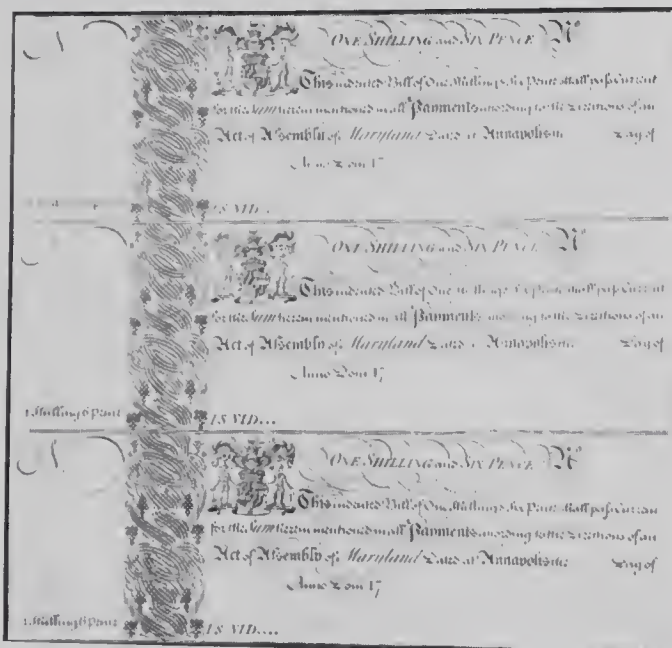 ONE SHILLING and SIX PENCE No
This indented Bill of One Shilling & Six Pence shall pass Current
for the Sum herein mentioned in all Payments according to the Directions of an
Act of Assembly of Maryland Dated at Annapolis this Day of
Anno Dom 17
IS VID...
ONE SHILLING and SIX PENCE No
This indented Bill of One Shilling & Six Pence shall pass Current
for the Sum herein mentioned in all Payments according to the Directions of an
Act of Assembly of Maryland Dated at Annapolis this Day of
Anno Dom 17
1 Shilling 6 Pence IS VID...
N
ONE SHILLING and SIX PENCE No
This indented Bill of One Shilling & Six Pence shall pass Current
for the Sum herein mentioned in all Payments according to the Directions of an
Act of Assembly of Maryland Dated at Annapolis this Day of
Anno Dom 17
1 Shilling 6 Pence IS VID...